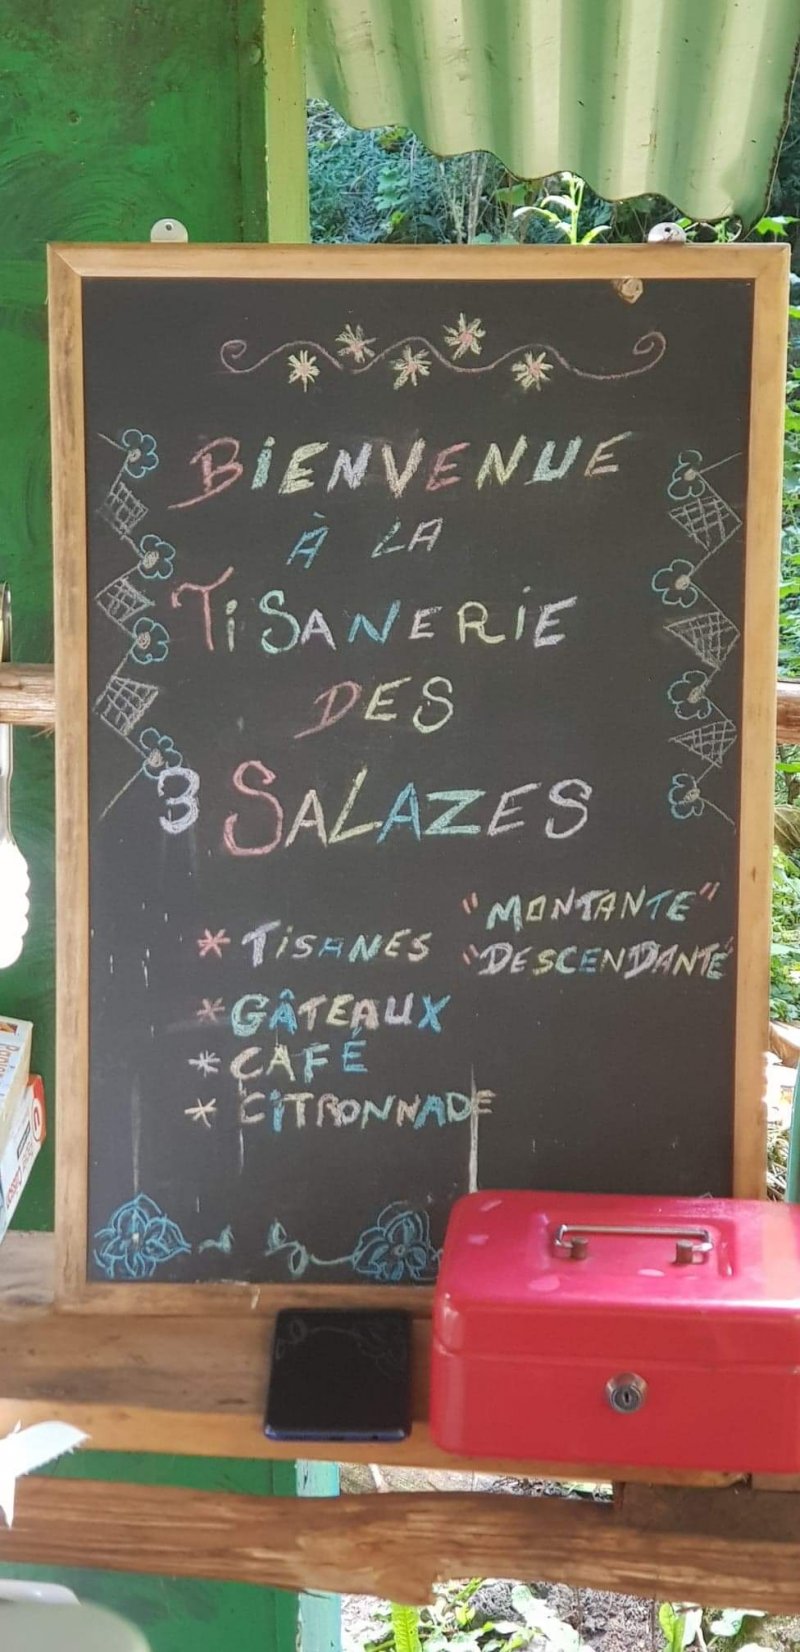 BiENVENUE
À LA
TiSANERiE
DES
3 SALAZES
"MONTANTE"
* TiSANES "DESCENDANTE"
* GÂTEAUX
* CAFÉ
* CiTRONNADE